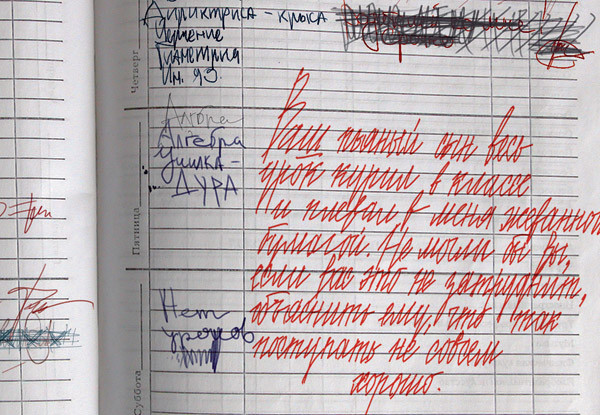 Дириктриса - крыса
Черчение
Гиаметрия
Ин. яз.
Четверг
Алгбра
Алгебра
училка -
ДУРА
Пятница
Нет
уроков
Суббота
В
Ваш пьяный сын весь
урок курил в классе
и плевал в меня жеванной
бумагой. Не могли бы вы,
если вас это не затруднит,
объяснить ему, что так
поступать не совсем
хорошо.